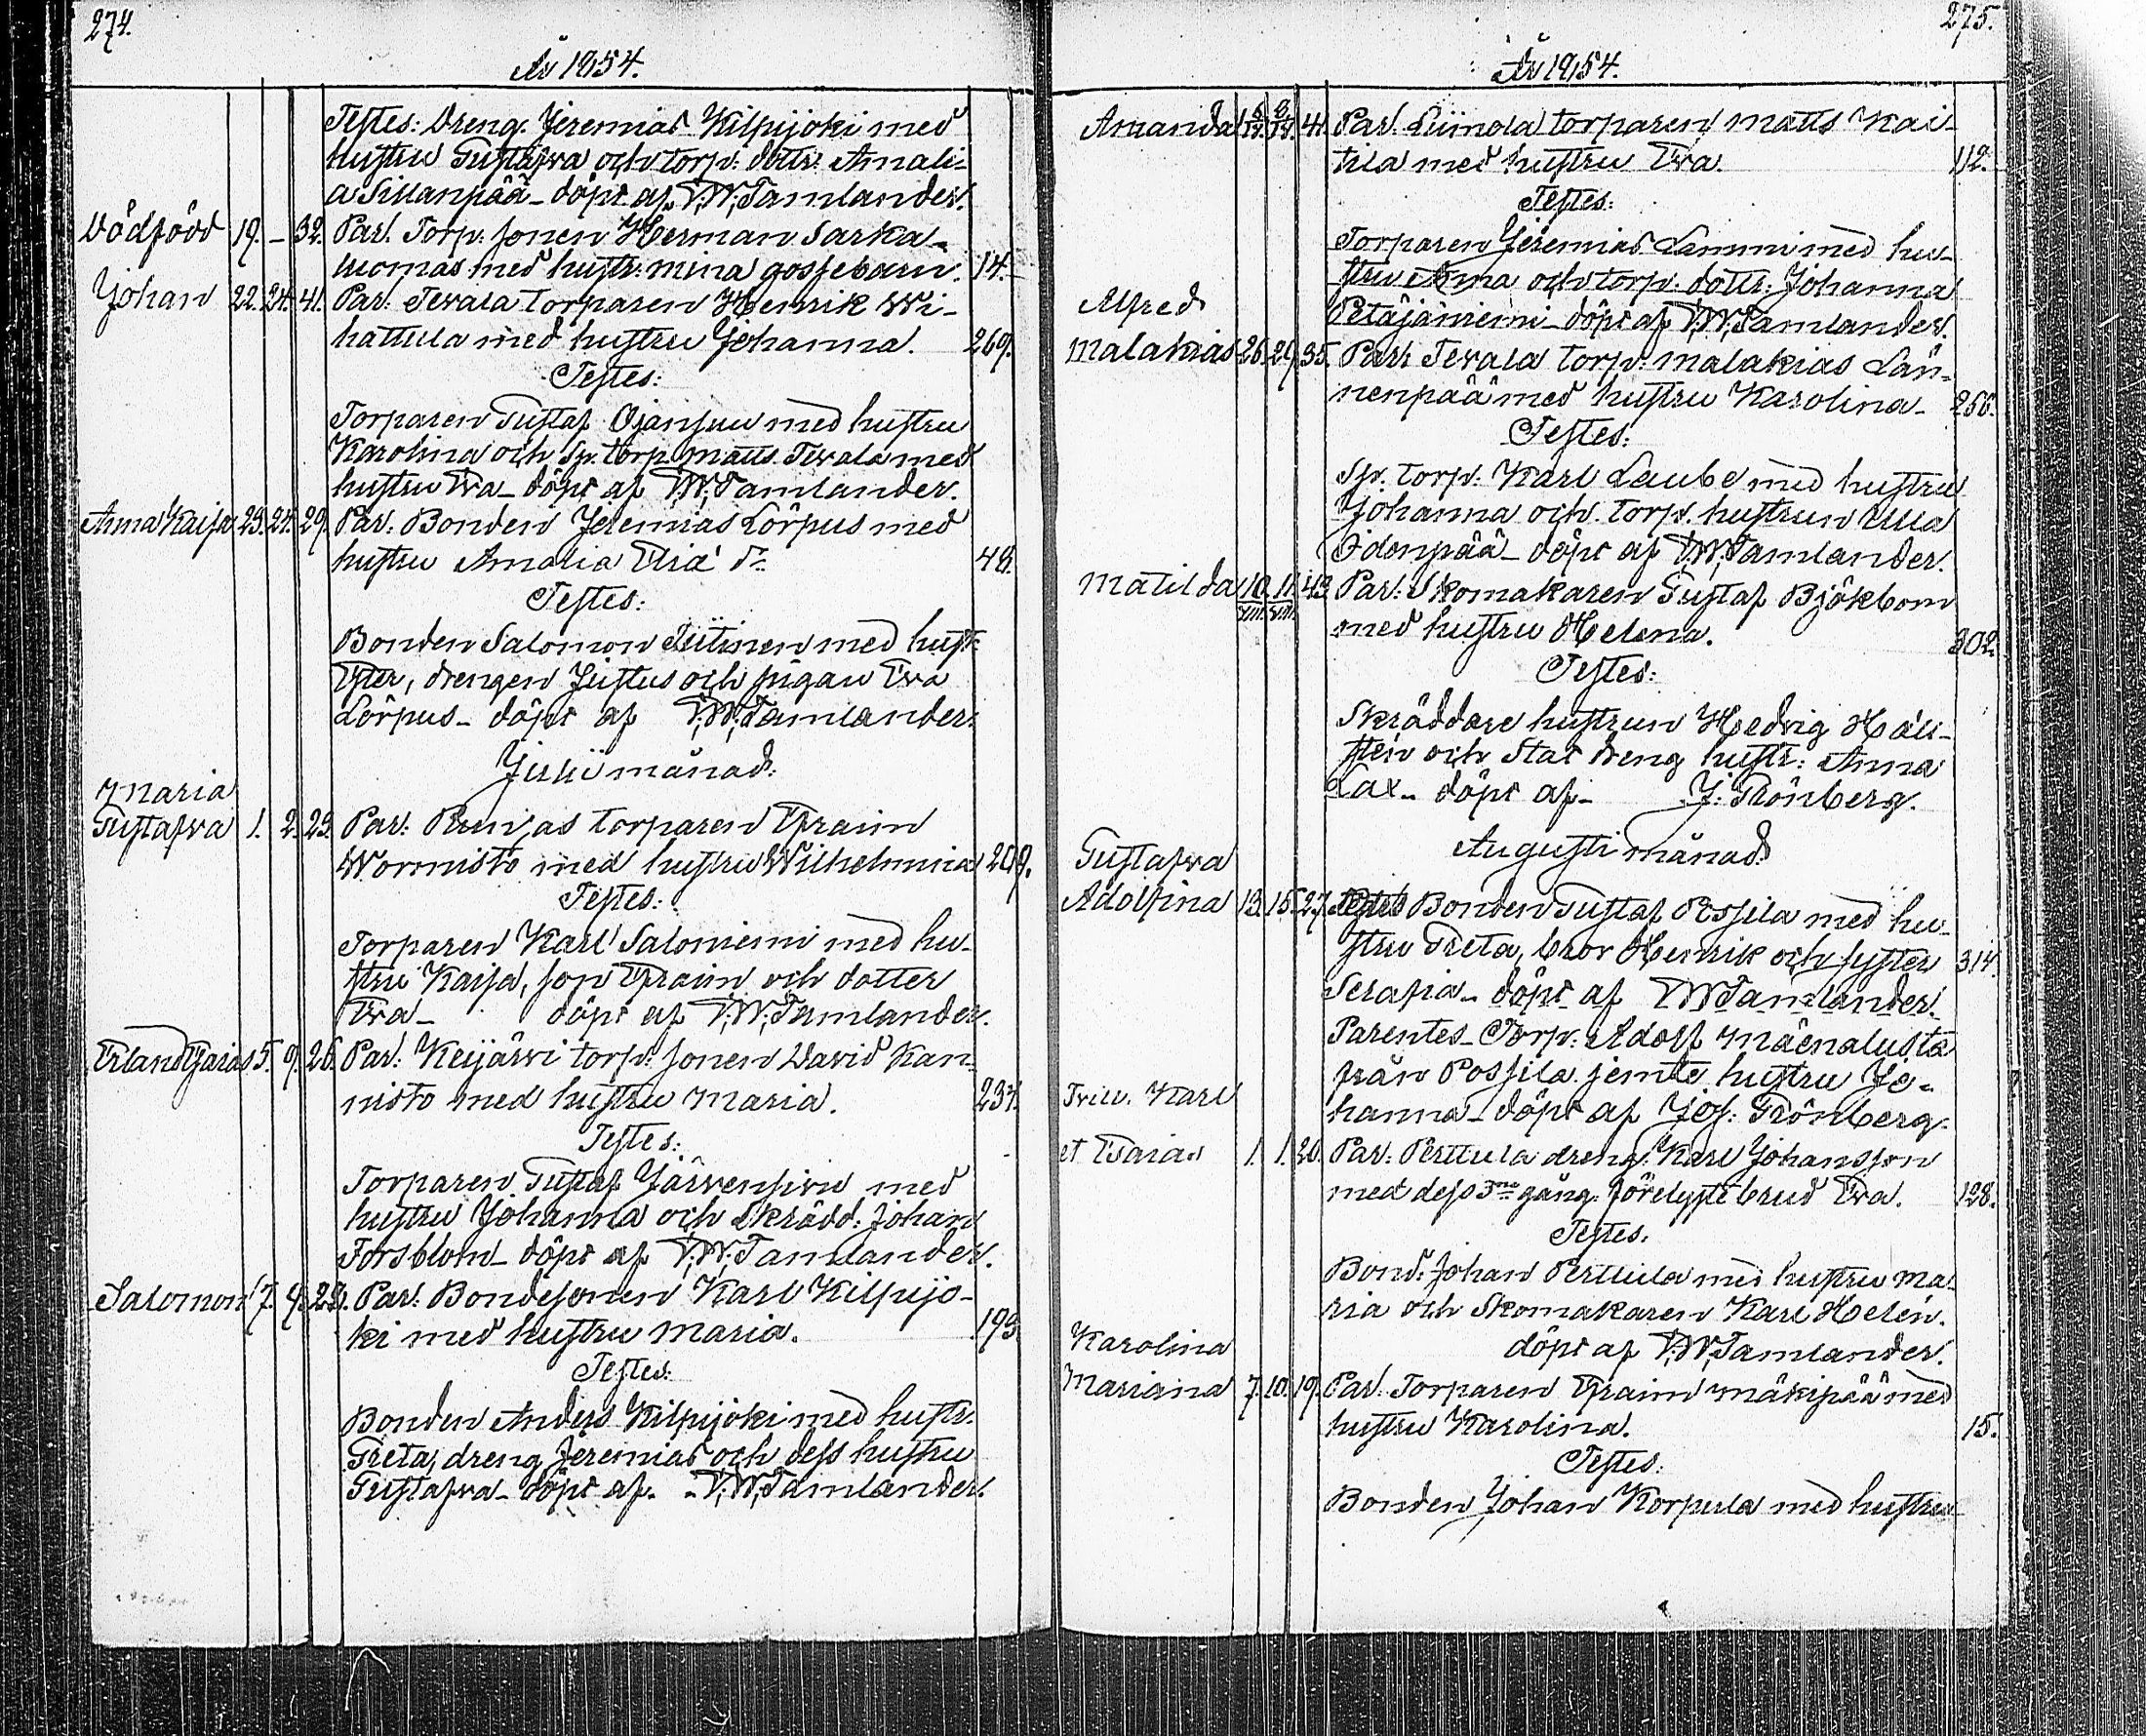 274.
År 1854.
Testes: Dreng. Jeremias Kilpijoki med
hustru Gustafva och torp: dottr: Amali-
a Sillanpää - döpt af T.W. Tamlander.
Dödfödd 19. - 32. Par. Torp: sonen Herman Sarka-
luomas med hustr: Mina gossebarn. 14.
Johan 22. 24. 41. Par: Tevala torparen Henrik Wi-
hattula med hustru Johanna. 269.
Testes:
Torparen Gustaf Ojansuu med hustru
Karolina och Sp. torp. Matts Tevala med
hustru Eva - döpt af T.W. Tamlander.
Anna Kajsa 23. 24. 29. Par: Bonden Jeremias Lörpus med
hustru Amalia 48.
Testes:
Bonden Salomon Tiitinen med hustr:
Ester, drengen Justus och pigan Eva
Lörpus - döpt af T.W. Tamlander.
Julii månad:
Maria
Gustafva 1. 2. 23. Par: torparen Efraim
Wormisto med hustru Wilhelmina 209.
Testes:
Torparen Karl Saloniemi med hu-
stru Kajsa, son Efraim och dotter
Eva - döpt af T.W. Tamlander.
Erland Esaias 5. 9. 26. Par: Keijärvi torp: sonen David Kan-
nisto med hustru Maria. 237.
Testes:
Torparen Gustaf Järvensivu med
hustru Johanna och Skrädd: Johan
Forsblom - döpt af T.W. Tamlander.
Salomon 7. 9. 28. Par: Bondesonen Karl Kilpijo-
ki med hustru Maria. 193
Testes:
Bonden Anders Kilpijoki med hustr.
Greta, dreng Jeremias och dess hustru
Gustafva - döpt af - T.W. Tamlander.
275.
År 1854.
Amanda 41. Par. Liinola torparen Matts Kai-
tila med hustru Eva. 112.
Testes:
Torparen Jeremias Lammi med hu-
stru Anna och torp. dottr: Johanna
Petäjäniemi - döpt af T.W. Tamlander.
Alfred
Malakias 26. 29. 35. Par: Tevala torp: Malakias Län-
nenpää med hustru Karolina - 256.
Testes:
Sp. torp: Karl Laube med hustru
Johanna och torp. hustrun Ulla
Odenpää - döpt af T.W. Tamlander.
Matilda 10. 11. 43. Par: Skomakaren Gustaf Björkbom
med hustru Helena. 302.
Testes:
Skräddare hustrun Hedvig Häll-
sten och Stat dreng hustr: Anna
Lax - döpt af - J: Grönberg.
Augusti månad:
Gustafva
Adolfina 13. 15. 27. Testes Bonden Gustaf Possila med hu-
stru Greta, bror Henrik och syster 314.
Serafia - döpt af T.W. Tamlander.
Parentes - Torp: Adolf Mäenalusta
från Possila jemte hustru Jo-
hanna - döpt af Jos: Grönberg.
Trill. Karl
et Esaias 1. 1. 20. Par: Perttula dreng: Karl Johansson
med dess 3ne gång: förelyste brud Eva. 128.
Testes.
Bond: Johan Perttula med hustru Ma-
ria och Skomakaren Karl Helén.
döpt af T.W. Tamlander.
Karolina
Mariana 7. 10. 19. Par. Torparen Efraim Mäkipää med
hustru Karolina. 15.
Testes:
Bonden Johan Korpula med hustru